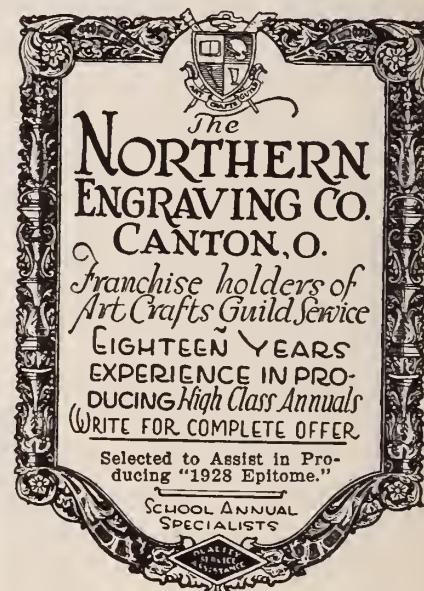 ART CRAFTS GUILD
The
NORTHERN
ENGRAVING CO.
CANTON, O.
Franchise holders of
Art Crafts Guild Service
EIGHTEEN YEARS
EXPERIENCE IN PRO-
DUCING High Class Annuals
WRITE FOR COMPLETE OFFER
Selected to Assist in Pro-
ducing "1928 Epitome."
SCHOOL ANNUAL
SPECIALISTS
QUALITY
SERVICE
ASSISTANCE